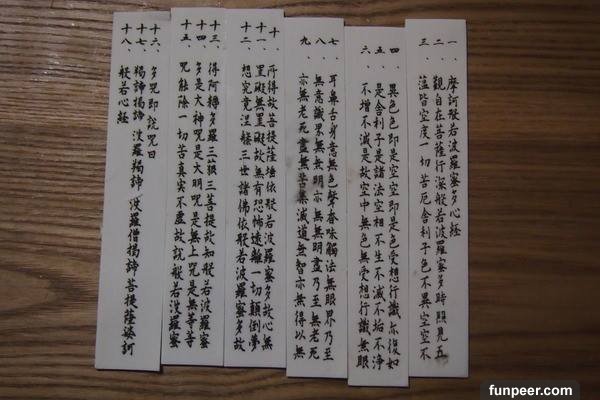 一、摩訶般若波羅蜜多心経
二、觀自在菩薩行深般若波羅蜜多時照見五
三、蘊皆空度一切苦厄舍利子色不異空空不
四、異色色即是空空即是色受想行識亦復如
五、是舍利子是諸法空相不生不滅不垢不淨
六、不增不減是故空中無色無受想行識無眼
七、耳鼻舌身意無色聲香味觸法無眼界乃至
八、無意識界無無明亦無無明盡乃至無老死
九、亦無老死盡無苦集滅道無智亦無得以無
十、所得故菩提薩埵依般若波羅蜜多故心無
十一、罣礙無罣礙故無有恐怖遠離一切顛倒夢
十二、想究竟涅槃三世諸佛依般若波羅蜜多故
十三、得阿耨多羅三藐三菩提故知般若波羅蜜
十四、多是大神咒是大明咒是無上咒是無等等
十五、咒能除一切苦真實不虛故說般若波羅蜜
十六、多咒即說咒曰
十七、揭諦揭諦 波羅揭諦 波羅僧揭諦 菩提薩婆訶
十八、般若心経
funpeer.com